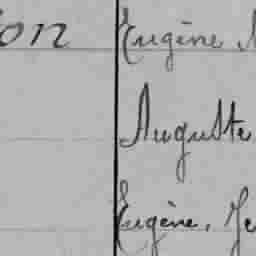 on Eugène,
Auguste
Eugène, Je